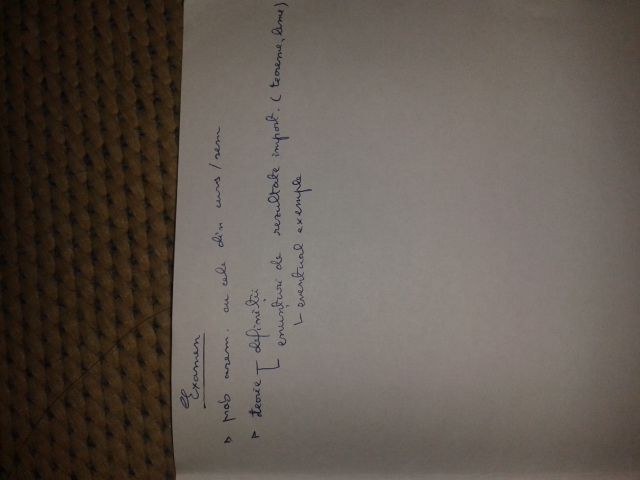 Examen
▷ prob asem. cu cele din curs / sem
▷ teorie - definiții
- enunțuri de rezultate import. ( teoreme, leme)
- eventual exemple